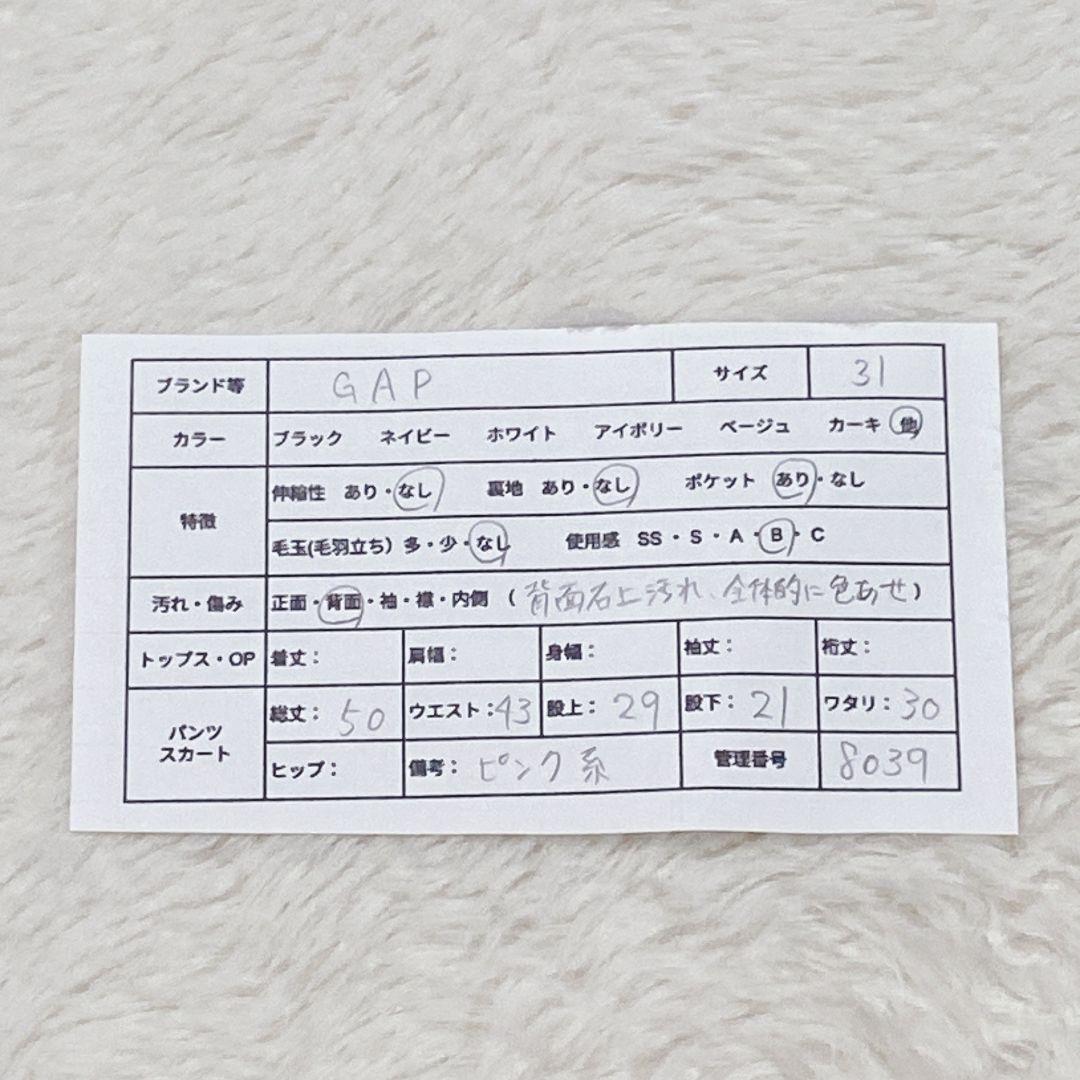 ブランド等 GAP サイズ 31
カラー ブラック ネイビー ホワイト アイボリー ベージュ カーキ 他
特徴 伸縮性 あり・なし 裏地 あり・なし ポケット あり・なし
毛玉(毛羽立ち) 多・少・なし 使用感 SS・S・A・B・C
汚れ・傷み 正面・背面・袖・襟・内側 (背面右上汚れ、全体的に色あせ)
トップス・OP 着丈: 肩幅: 身幅: 袖丈: 裄丈:
パンツ スカート 総丈: 50 ウエスト: 43 股上: 29 股下: 21 ワタリ: 30
ヒップ: 備考: ピンク系 管理番号 8039